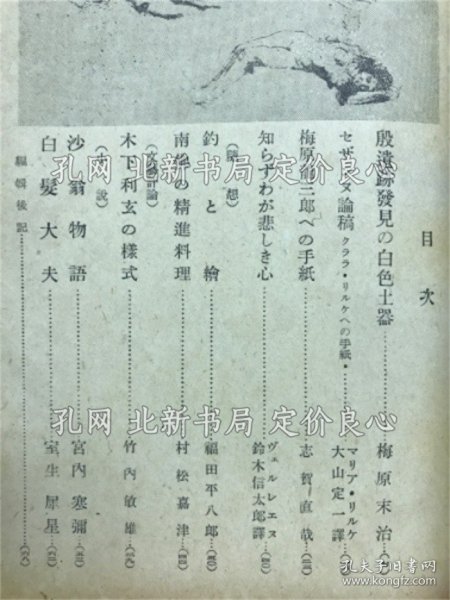 目次
殷遺跡發見の白色土器 梅原末治
セザンヌ論稿 クララ・リルケへの手紙 マリア・リルケ 大山定一譯
梅原龍三郎への手紙 志賀直哉
知らずわが悲しき心 ヴェルレエヌ 鈴木信太郎譯
釣と繪 福田平八郎
の精進料理 村松嘉津
木下利玄の樣式 竹內敏雄
沙翁物語 宮內寒彌
白髮大夫 室生犀星
編輯後記
孔网 北新书局 定价良心
孔网 北新书局 定价良心
孔夫子旧书网